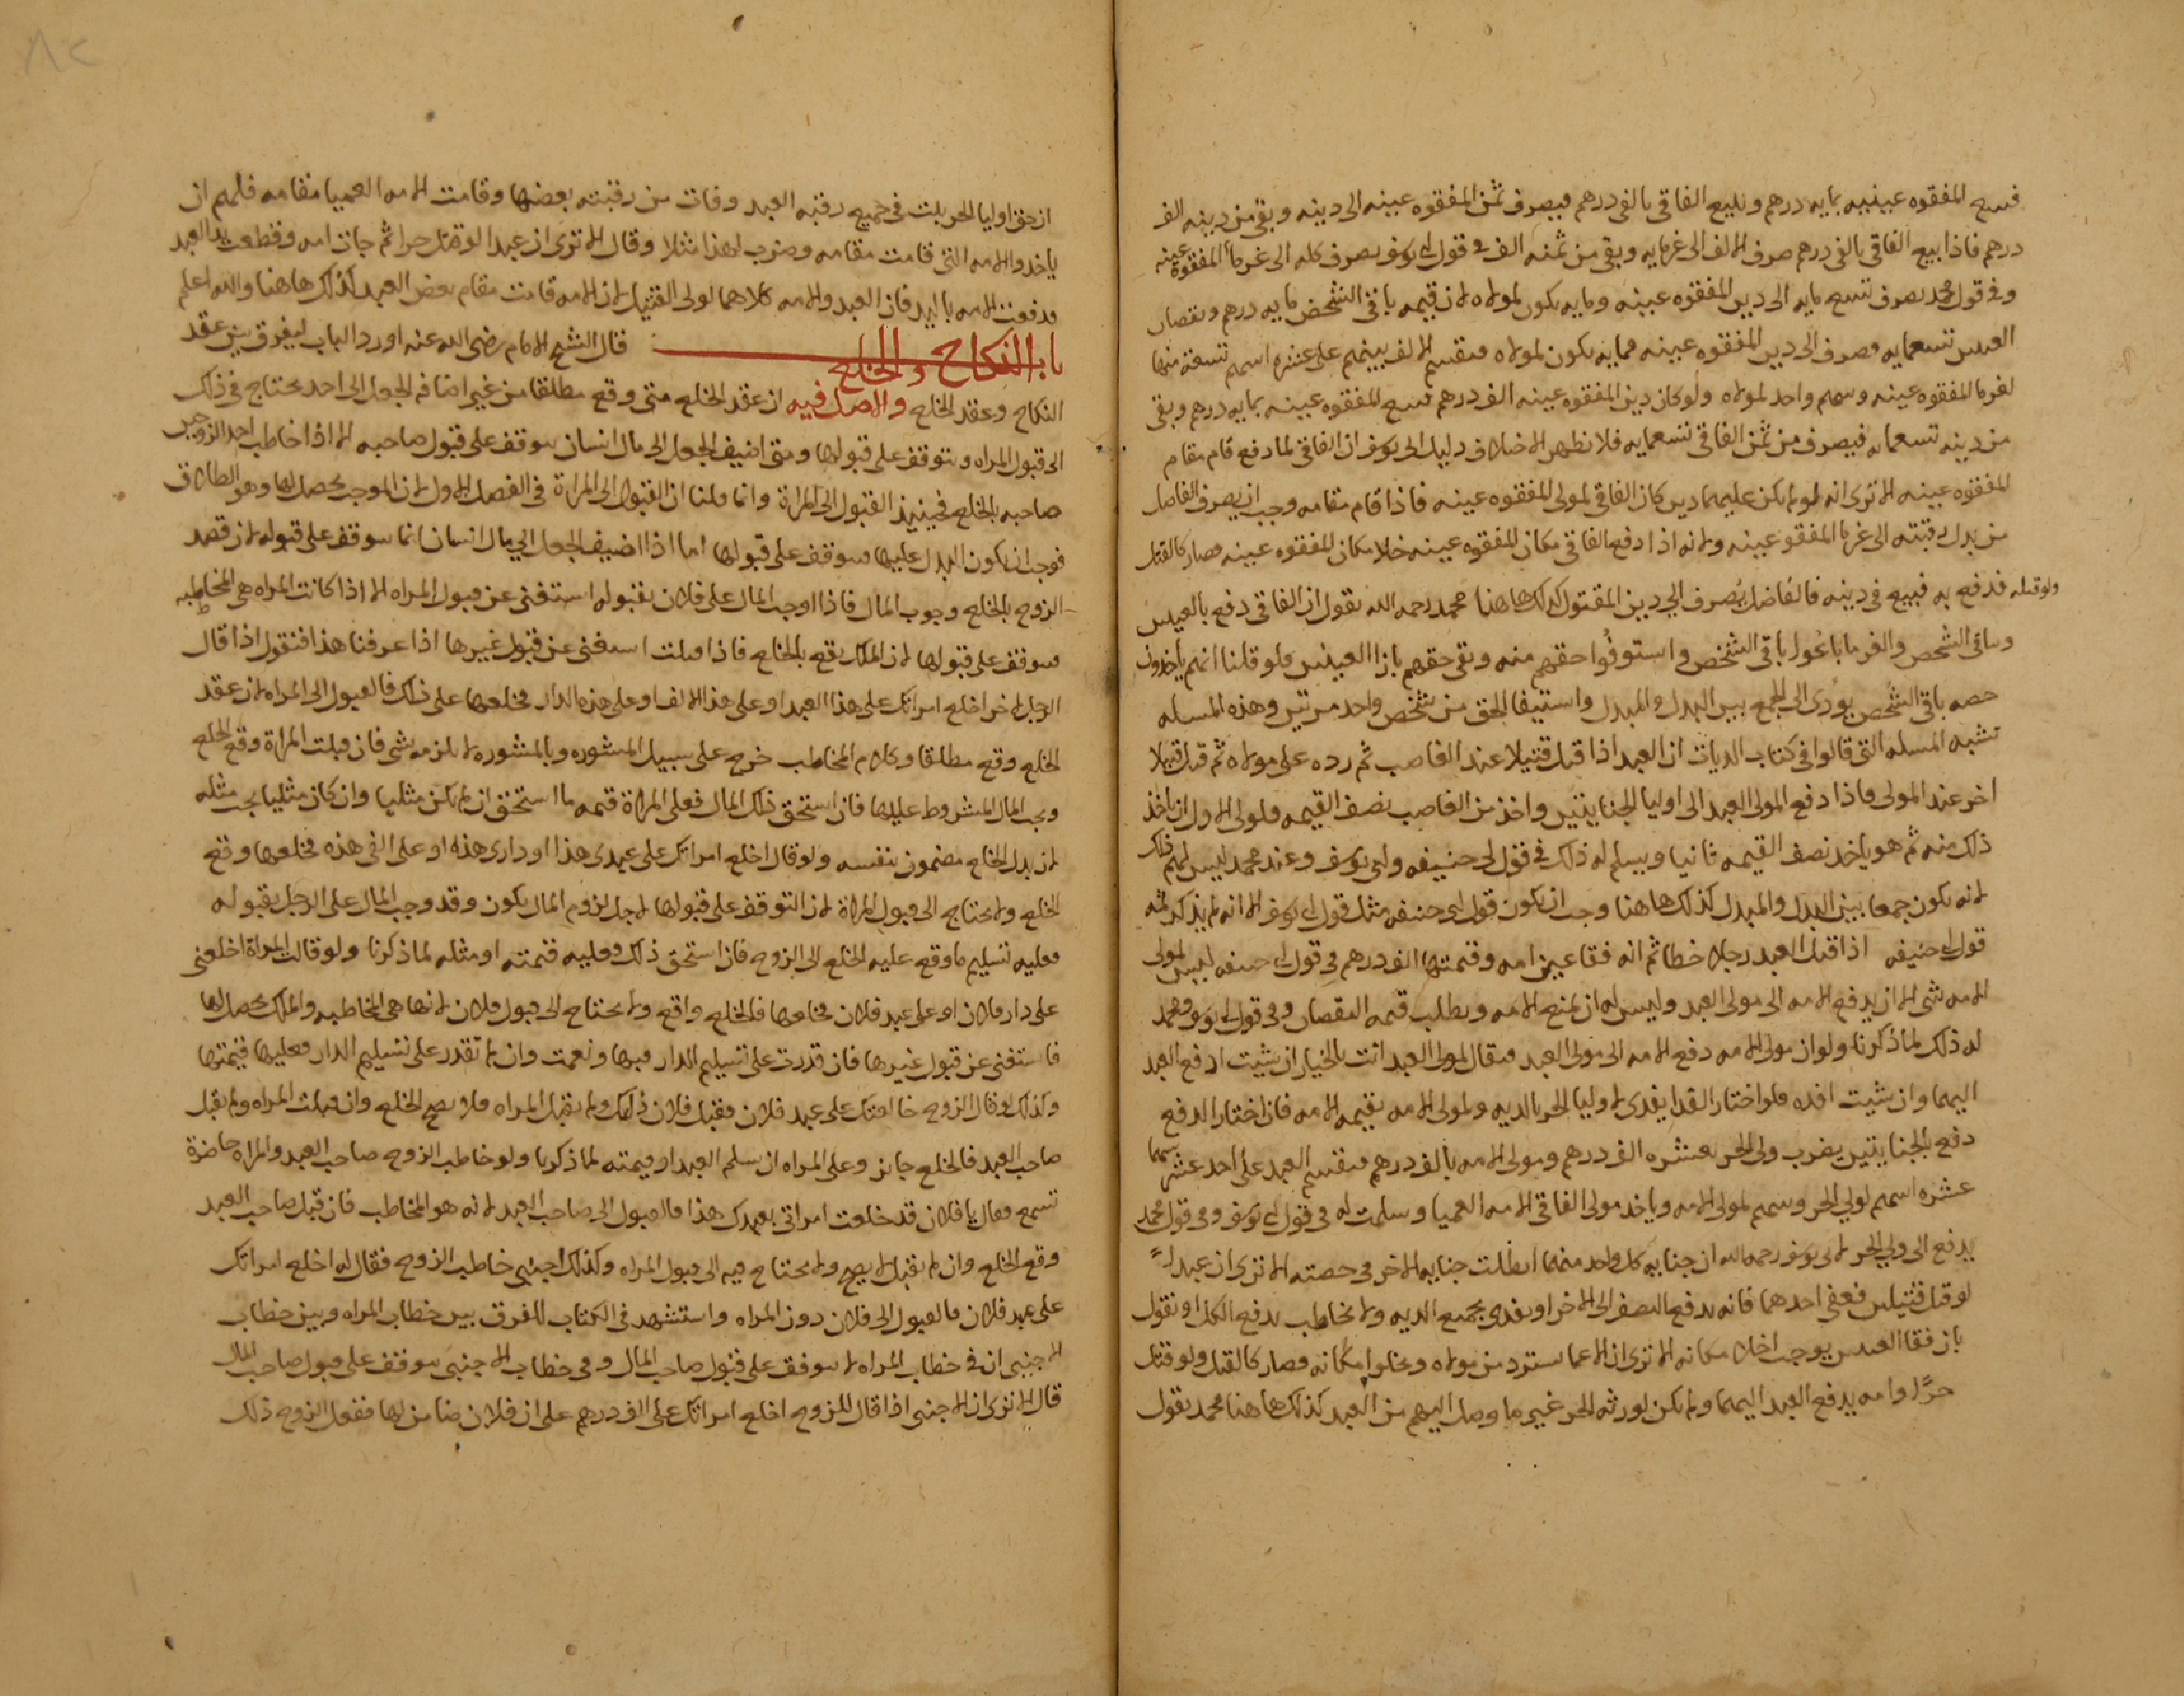 فبيع المفقوه عينيه بمايه درهم وبيع الفاقي بالفي درهم فيصرف ثمن المفقوه عينه الى دينه وبقي من دينه الف
درهم فاذا بيع الفاقي بالفي درهم صرف الالف الى غرمايه وبقي من ثمنه الف في قول ابي يوسف يصرف كله الى غرما المفقوه عينه
وفي قول محمد يصرف تسع مايه الى دين المفقوه عينه ومايه يكون لمولاه لان قيمه باقي الشخص مايه درهم ونقصان
العينين تسعمايه فصرف الى دين المفقوه عينه فمايه يكون لمولاه فيقسم الالف بينهم على عشره اسهم تسعة منها
لغرما المفقوه عينه وسهم واحد لمولاه ولو كان دين المفقوه عينه الف درهم فبيع المفقوه عينه بمايه درهم وبقي
من دينه تسعمايه فيصرف من ثمن الفاقي تسعمايه فلا نظهر الاختلاف دليل ابي يوسف ان الفاقي لما دفع قام مقام
المفقوه عينه الا ترى انه لو لم يكن عليهما دين كان الفاقي لمولى المفقوه عينه فاذا قام مقامه وجب ان يصرف الفاضل
من بدل رقبته الى غرما المفقو عينه ولانه اذا دفع الفاقي مكان المفقوه عينه خلا مكان المفقوه عينه فصار كالقتل
ولو قتله فدفع به فبيع في دينه فالفاضل يصرف الى دين المقتول كذلك هاهنا محمد رحمه الله يقول ان الفاقي دفع بالعينين
وباقي الشخص والغرما باعوا باقي الشخص واستوفوا حقهم منه وبقي حقهم بازا العينين فلو قلنا انهم ياخذون
حصه باقي الشخص يودى الى الجمع بين البدل والمبدل واستيفا الحق من شخص واحد مرتين وهذه المسله
تشبه المسله التي قالوا في كتاب الديات ان العبد اذا قتل قتيلا عند الغاصب ثم رده على مولاه ثم قتل قتيلا
اخر عند المولى فاذا دفع المولى العبد الى اوليا الجنايتين واخذ من الغاصب نصف القيمه فلولي الاول ان ياخذ
ذلك منه ثم هو ياخذ نصف القيمه ثانيا ويسلم له ذلك في قول ابي حنيفه وابي يوسف وعند محمد ليس لهم ذلك
لانه يكون جمعا بين البدل والمبدل كذلك هاهنا وجب ان يكون قول ابي حنيفه مثل قول ابي يوسف الا انه لم يذكر ثمه
قول ابي حنيفه اذا قتل العبد رجلا خطا ثم انه فقا عين امه وقيمتها الف درهم في قول ابي حنيفه ليس لمولى
الامه شي الا ان يدفع الامه الى مولى العبد وليس له ان يمنع الامه ويطلب قيمه النقصان وفي قول ابي يوسف ومحمد
له ذلك لما ذكرنا ولو ان مولى الامه دفع الامه الى مولى العبد فيقال لمولى العبد انت بالخيار ان شيت ادفع العبد
اليهما وان شيت افده فلو اختار الفدا يفدى لاوليا الحر بالديه ولمولى الامه بقيمه الامه فان اختار الدفع
دفع بالجنايتين يضرب ولي الحر بعشره الف درهم ومولى الامه بالف درهم فيقسم العبد على احد عشر سهما
عشره اسهم لولي الحر وسهم لمولى الامه وياخذ مولى الفاقي الامه العميا وسلمت له في قول ابي يوسف وفي قول محمد
يدفع الى ولي الحر لابي يوسف رحمه الله ان جنايه كل واحد منهما ابطلت جنايه الاخر في حصته الا ترى ان عبدا
لو قتل قتيلين فعفي احدهما فانه يدفع النصف الى الاخر او يفدى بجميع الديه ولا يخاطب بدفع الكل او نقول
بان فقا العينين يوجب اخلا مكانه الا ترى ان الاعما يسترد من مولاه ويخلوا مكانه فصار كالقتل ولو قتل
حرا وامه يدفع العبد اليهما ولم يكن لورثه الحر غير ما وصل اليهم من العبد كذلك هاهنا محمد يقول
از حق اوليا الحر يثبت في جميع رقبه العبد وفات من رقبته بعضها وقامت الامه العميا مقامه فلهم ان
ياخذوا الامه التي قامت مقامه وضرب لهذا مثلا وقال الا ترى ان عبدا لو قتل حرا ثم جات امه وقطعت يد العبد
فدفعت الامه باليد فان العبد والامه كلاهما لولي القتيل لان الامه قامت مقام بعض العبد كذلك هاهنا والله اعلم
باب النكاح والخلع قال الشيخ الامام رضي الله عنه اورد الباب ليفرق بين عقد
النكاح وعقد الخلع والاصل فيه ان عقد الخلع متى وقع مطلقا من غير اضافه الجعل الى احد يحتاج في ذلك
الى قبول المراه ويتوقف على قبولها ومتى اضيف الجعل الى مال انسان يتوقف على قبول صاحبه الا اذا خاطب احد الزوجين
صاحبه بالخلع فحينيذ القبول الى المراة وانما قلنا ان القبول الى المراة في الفصل الاول لان الموجب يحصل لها وهو الطلاق
فوجب ان يكون البدل عليها فيتوقف على قبولها اما اذا اضيف الجعل الى مال انسان انما يتوقف على قبوله لان قصد
الزوج بالخلع وجوب المال فاذا اوجب المال على فلان بقبوله استغنى عن قبول المراه الا اذا كانت المراه هي المخاطبه
فيتوقف على قبولها لان الملك يقع بالخلع فاذا قبلت استغنى عن قبول غيرها اذا عرفنا هذا فنقول اذا قال
الرجل لاخر اخلع امراتك على هذا العبد او على هذا الالف او على هذه الدار فخلعها على ذلك فالقبول الى المراه لان عقد
الخلع وقع مطلقا وكلام المخاطب خرج على سبيل المشوره وبالمشوره لا يلزمه شي فان قبلت المراة وقع الخلع
ويجب المال المشروط عليها فان استحق ذلك المال فعلى المراة قيمه ما استحق ان لم يكن مثليا وان كان مثليا يجب مثله
لان بدل الخلع مضمون بنفسه ولو قال اخلع امراتك على عبدي هذا او داري هذه او على الفي هذه فخلعها وقع
الخلع ولا يحتاج الى قبول المراة لان التوقف على قبولها لاجل لزوم المال يكون وقد وجب المال على الرجل بقبوله
فعليه تسليم ما وقع عليه الخلع الى الزوج فان استحق ذلك فعليه قيمته او مثله لما ذكرنا ولو قالت المراة اخلعني
على دار فلان او على عبد فلان فخلعها فالخلع واقع ولا يحتاج الى قبول فلان لانها هي المخاطبه والملك يحصل لها
فاستغنى عن قبول غيرها فان قدرت على تسليم الدار فبها ونعمت وان لم تقدر على تسليم الدار فعليها قيمتها
وكذلك لو قال الزوج خالعتك على عبد فلان فقبل فلان ذلك ولم يقبل المراه فلا يصح الخلع وان قبلت المراه ولم يقبل
صاحب العبد فالخلع جايز وعلى المراه ان يسلم العبد او قيمته لما ذكرنا ولو خاطب الزوج صاحب العبد والمراه حاضرة
تسمع فقال يا فلان قد خلعت امراتي بعبدك هذا فالقبول الى صاحب العبد لانه هو المخاطب فان قبل صاحب العبد
وقع الخلع وان لم يقبل لا يصح ولا يحتاج فيه الى قبول المراه وكذلك اجنبي خاطب الزوج فقال له اخلع امراتك
على عبد فلان فالقبول الى فلان دون المراه واستشهد في الكتاب للفرق بين خطاب المراه وبين خطاب
الاجنبي ان في خطاب المراه لا يتوقف على قبول صاحب المال وفي خطاب الاجنبي يتوقف على قبول صاحب المال
قال الا ترى ان الاجنبي اذا قال للزوج اخلع امراتك على الف درهم على ان فلان ضامن لها ففعل الزوج ذلك
٨٢